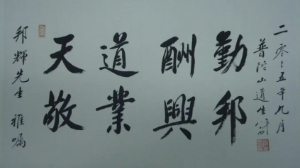 邦輝先生 雅囑
天道酬勤
敬業興邦
二〇〇五年九月
普陀山道生